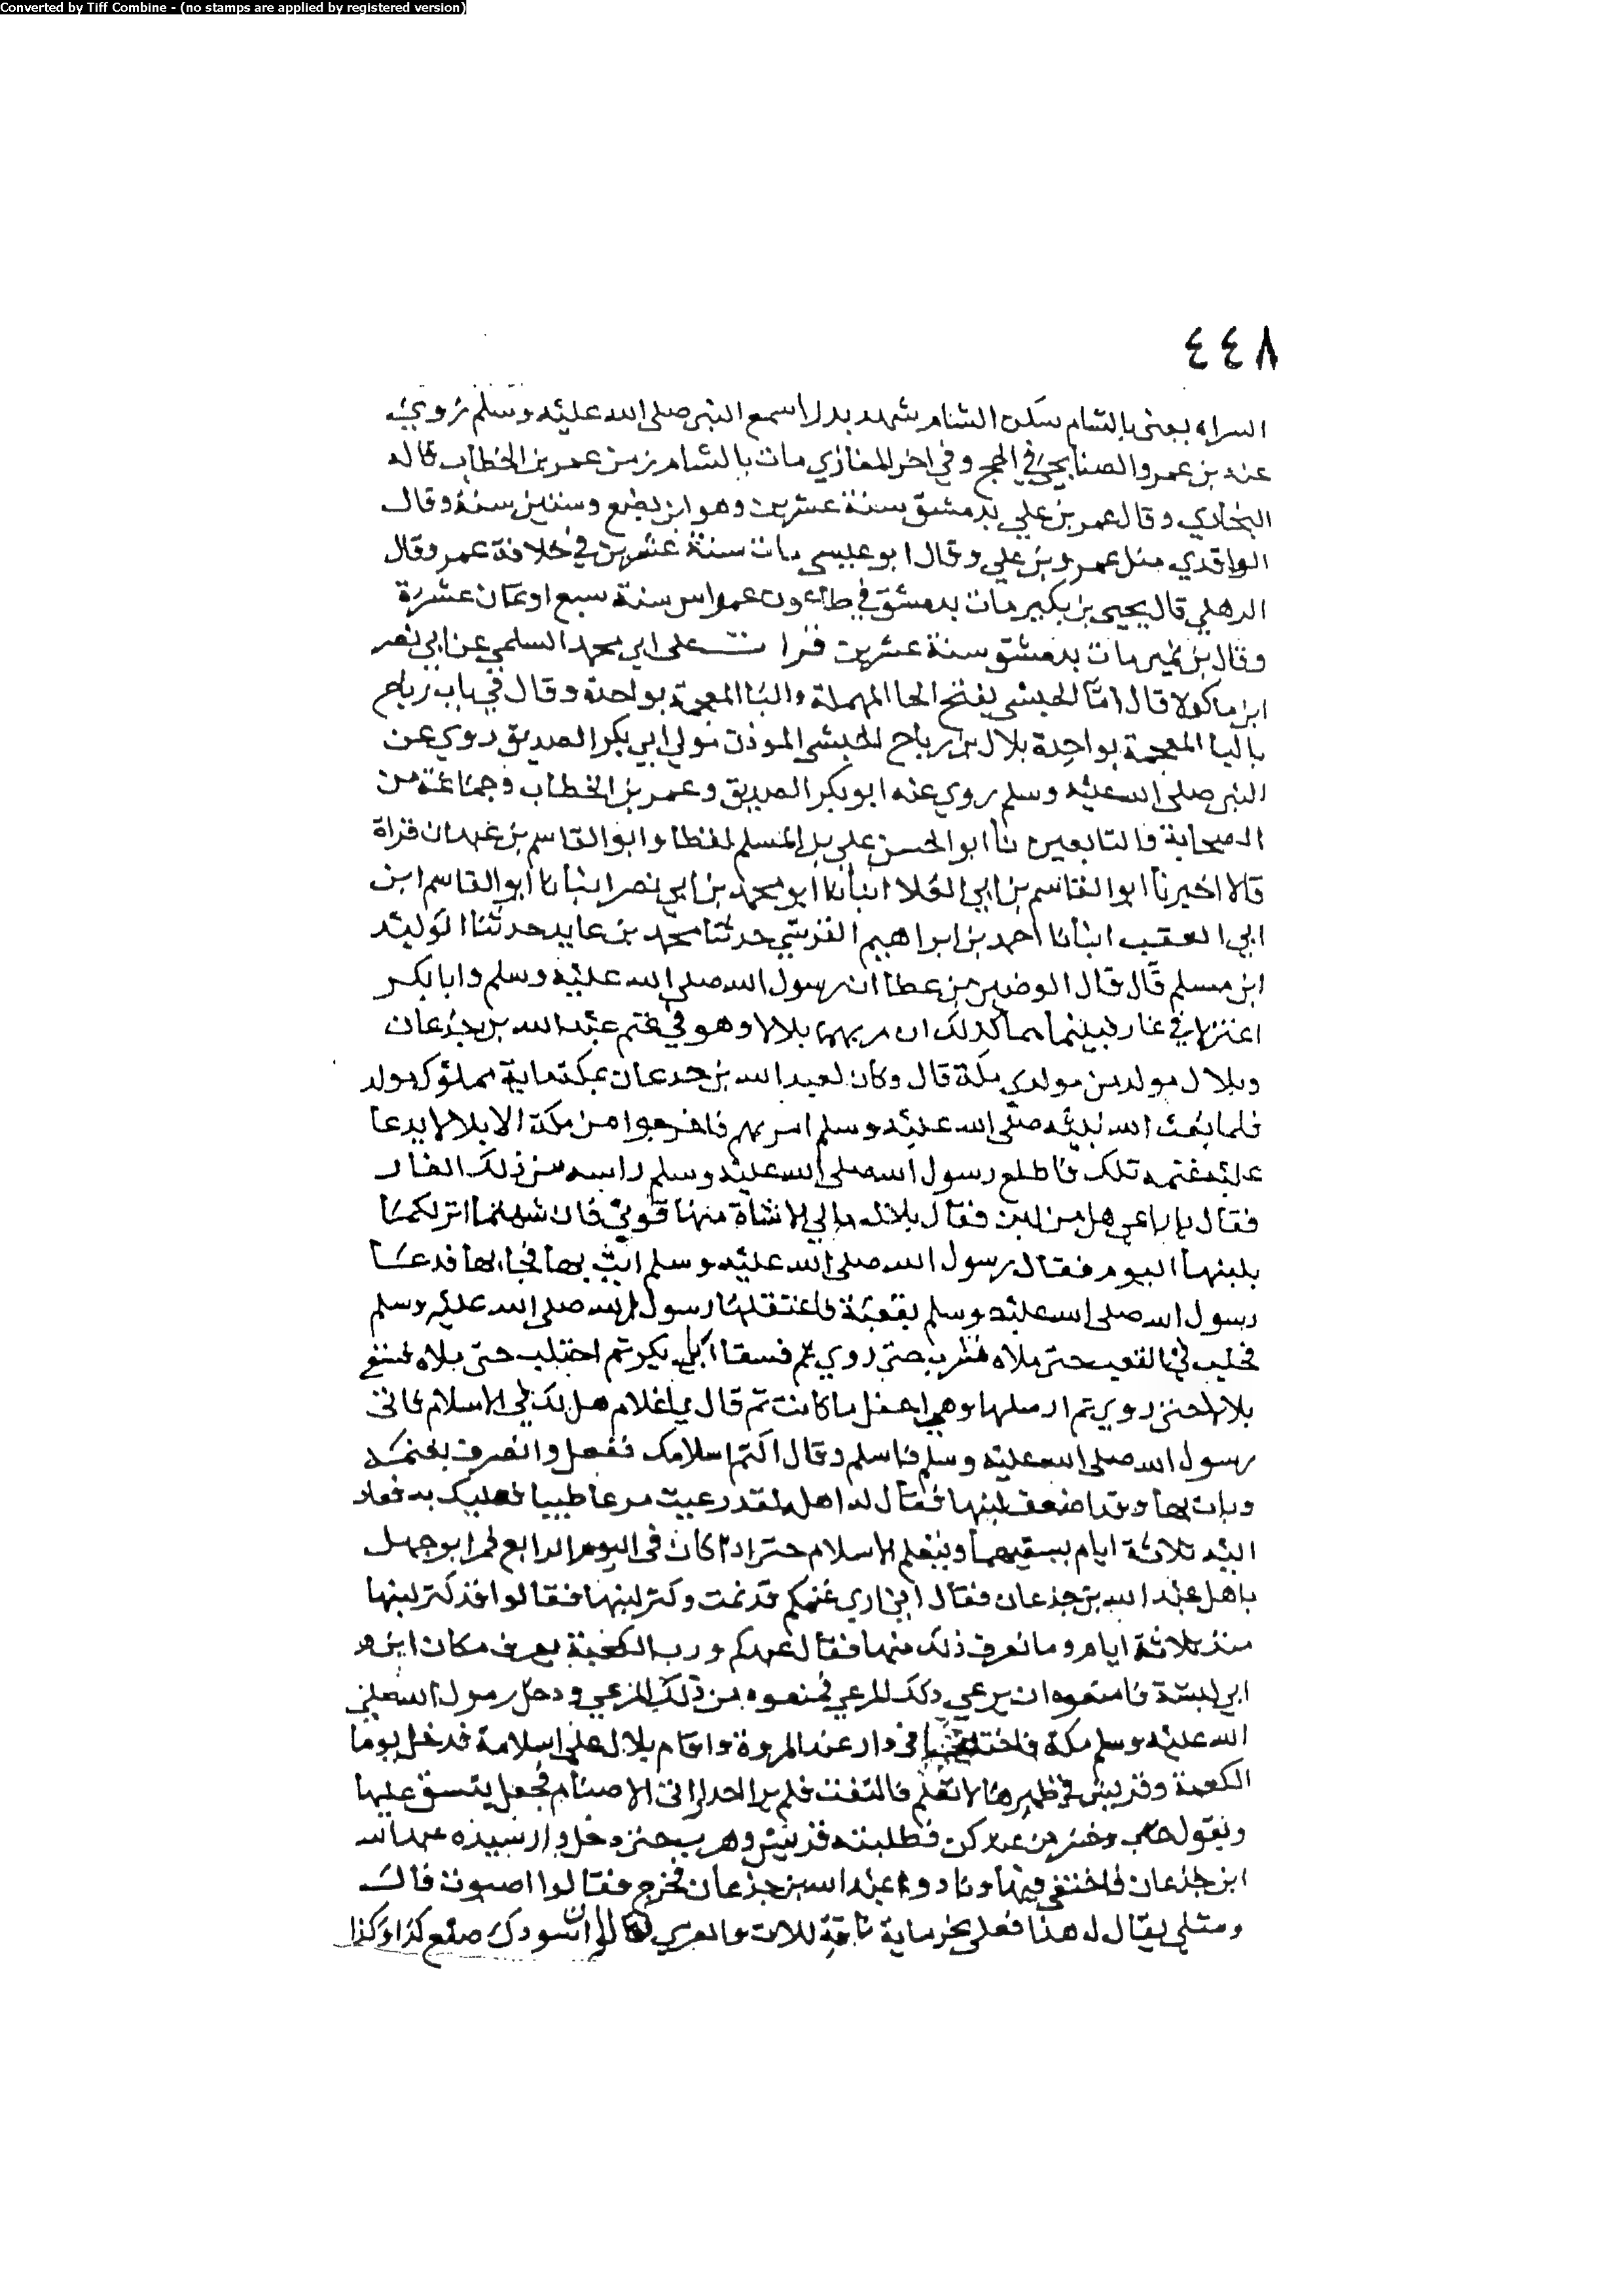 Converted by Tiff Combine - (no stamps are applied by registered version)
٤٤٨
السراه يعنى بالشام سكن الشام شهد بدرا سمع النبي صلى الله عليه وسلم روي
عنه بن عمر والصنابحي في الحج وفي اخر المغازي مات بالشام زمن عمر بن الخطاب قاله
البخاري وقال عمر بن علي بدمشق سنة عشرين وهو ابن بضع وستين سنة وقال
الواقدي مثل عمرو بن علي وقال ابو عيسى مات سنة عشرين في خلافة عمر وقال
الدهلي قال يحيى بن بكير مات بدمشق في طاعون عمواس سنة سبع او ثمان عشرة
وقال بن نمير مات بدمشق سنة عشرين قرات على ابي محمد السلمي عن ابي نصر
ابن ماكولا قال اما الحبشي بفتح الحا المهملة والبا المعجمة بواحدة وقال في باب رباح
بالبا المعجمة بواحدة بلال بن رباح الحبشي الموذن مولي ابي بكر الصديق روي عن
النبي صلى الله عليه وسلم روي عنه ابو بكر الصديق وعمر بن الخطاب وجماعة من
الصحابة والتابعين نا ابو الحسن علي بن المسلم لفظا وابو القاسم بن عبدان قراة
قالا اخبرنا ابو القاسم بن ابي العلا انبانا ابو محمد بن ابي نصر انبانا ابو القاسم ابن
ابي العقب انبانا احمد بن ابراهيم القرشي حدثنا محمد بن عايد حدثنا الوليد
ابن مسلم قال قال الوضين بن عطا ان رسول الله صلى الله عليه وسلم وابا بكر
اعتزلا في غار فبينما هما كذلك ان مر بهما بلالا وهو في غنم عبد الله بن جدعان
وبلال مولد من مولدي مكة قال وكان لعبد الله بن جدعان بمكة ماية مملوك مولد
فلما بعث الله نبيه صلى الله عليه وسلم امر بهم فاخرجوا من مكة الا بلالا يرعا
عليه غنمه تلك فاطلع رسول الله صلى الله عليه وسلم راسه من ذلك الغار
فقال يا راعي هل من لبن فقال بلال ما لي الا شاة منها قوتي فان شيتما اثرتكما
بلبنها اليوم فقال رسول الله صلى الله عليه وسلم ائت بها فجا بها فدعا
رسول الله صلى الله عليه وسلم بقعبة فاعتقلها رسول الله صلى الله عليه وسلم
فحلب في القعب حتى ملاه فشرب حتى روي ثم فسقا ابا بكر ثم احتلب حتى ملاه فسقى
بلالا حتى روي ثم ارسلها وهي احفل ما كانت ثم قال يا غلام هل لك في الاسلام فاني
رسول الله صلى الله عليه وسلم فاسلم وقال اكتم اسلامك ففعل وانصرف بغنمه
وبات بها وقد اضعف لبنها فقال له اهله لقد رعيت مرعا طيبا فعليك به فعاد
اليه ثلاثة ايام يسقيهما ويتعلم الاسلام حتى اذا كان في اليوم الرابع فمر ابو جهل
باهل عبد الله بن جدعان فقال اني اري غنمكم قد نمت وكثر لبنها فقالوا قد كثر لبنها
منذ ثلاثة ايام وما نعرف ذلك منها فقال عبدكم ورب الكعبة يعرف مكان ابن
ابي كبشة فامنعوه ان يرعي ذلك المرعي فمنعوه من ذلك المرعي ودخل رسول الله صلى
الله عليه وسلم مكة فاختفى في دار عند المروة واقام بلال على اسلامه فدخل يوما
الكعبة وقريش في ظهرها لا تعلم فالتفت فلم ير احدا اتى الاصنام فجعل يبسق عليها
ويقول خاب وخسر من عبدكن فطلبته قريش وهرب حتى دخل دار سيده عبد الله
ابن جدعان فاختفى فيها ونادوا عبد الله بن جدعان فخرج فقالوا اصبوت قال
ومثلي يقال له هذا فعلي نحر ماية ناقة للات والعزي قالوا فان اسودك صنع كذا وكذا